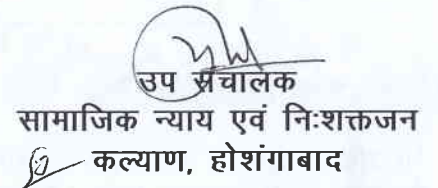 उप संचालक
सामाजिक न्याय एवं निःशक्तजन
कल्याण, होशंगाबाद